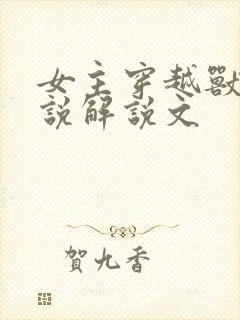 女主穿越獸
說解說文
賀九香